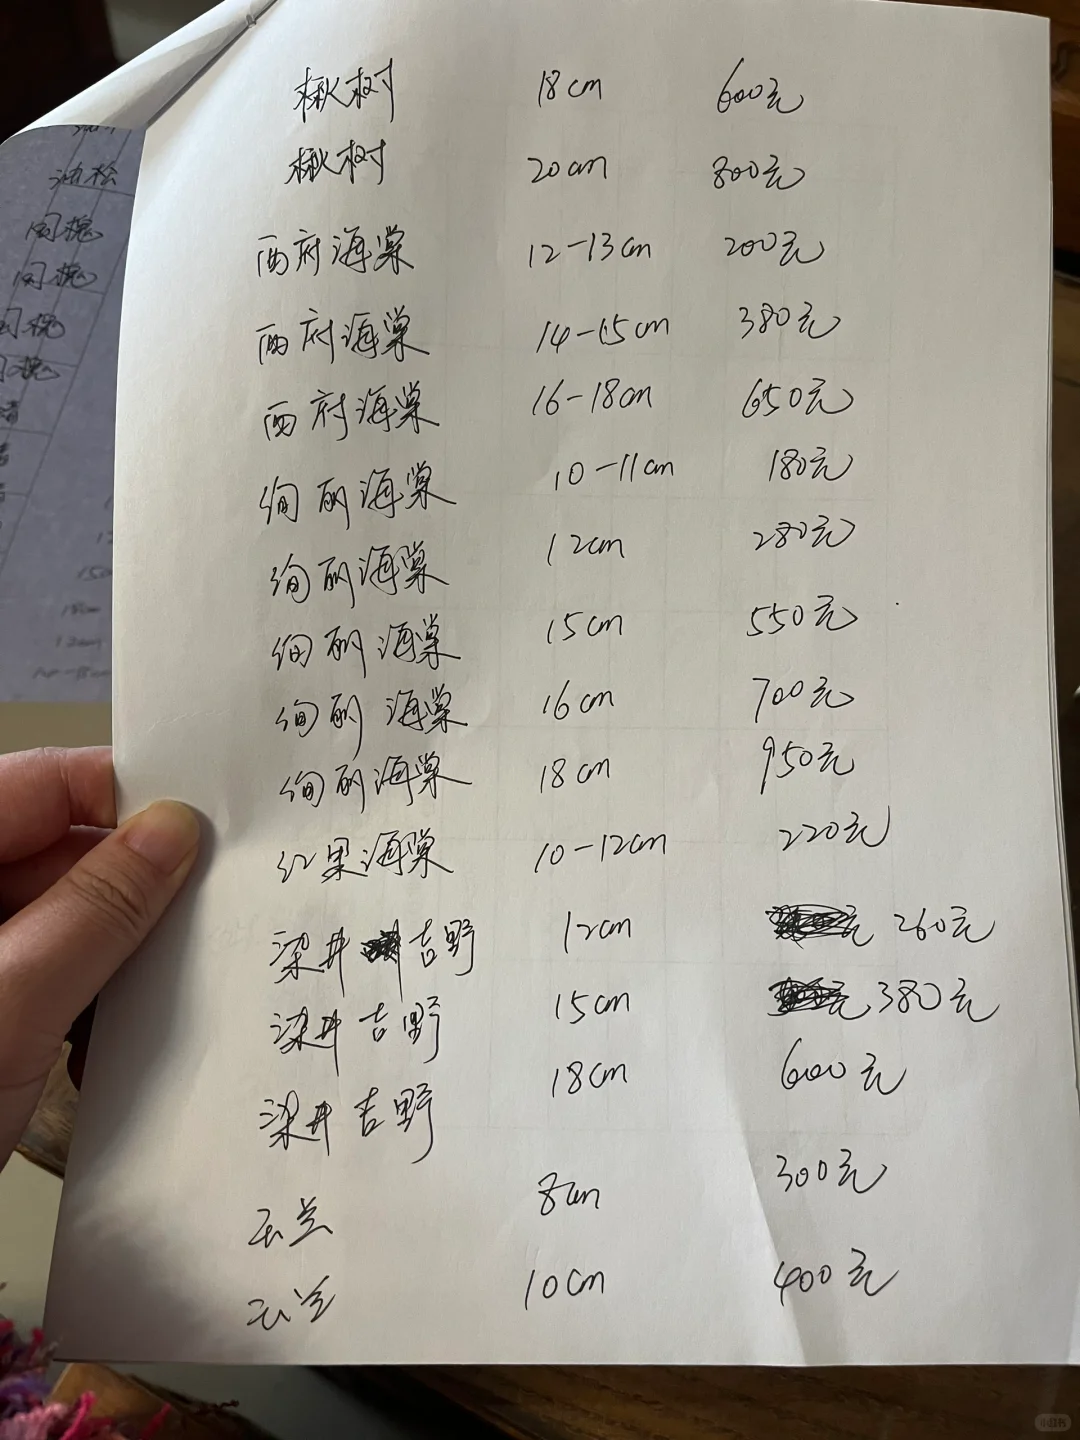 楸树 18cm 600元
楸树 20cm 800元
西府海棠 12-13cm 200元
西府海棠 14-15cm 380元
西府海棠 16-18cm 650元
绚丽海棠 10-11cm 180元
绚丽海棠 12cm 280元
绚丽海棠 15cm 550元
绚丽海棠 16cm 700元
绚丽海棠 18cm 950元
红果海棠 10-12cm 220元
染井吉野 12cm 260元
染井吉野 15cm 380元
染井吉野 18cm 600元
玉兰 8cm 300元
玉兰 10cm 400元
油松
国槐
国槐
国槐
国槐
小红书